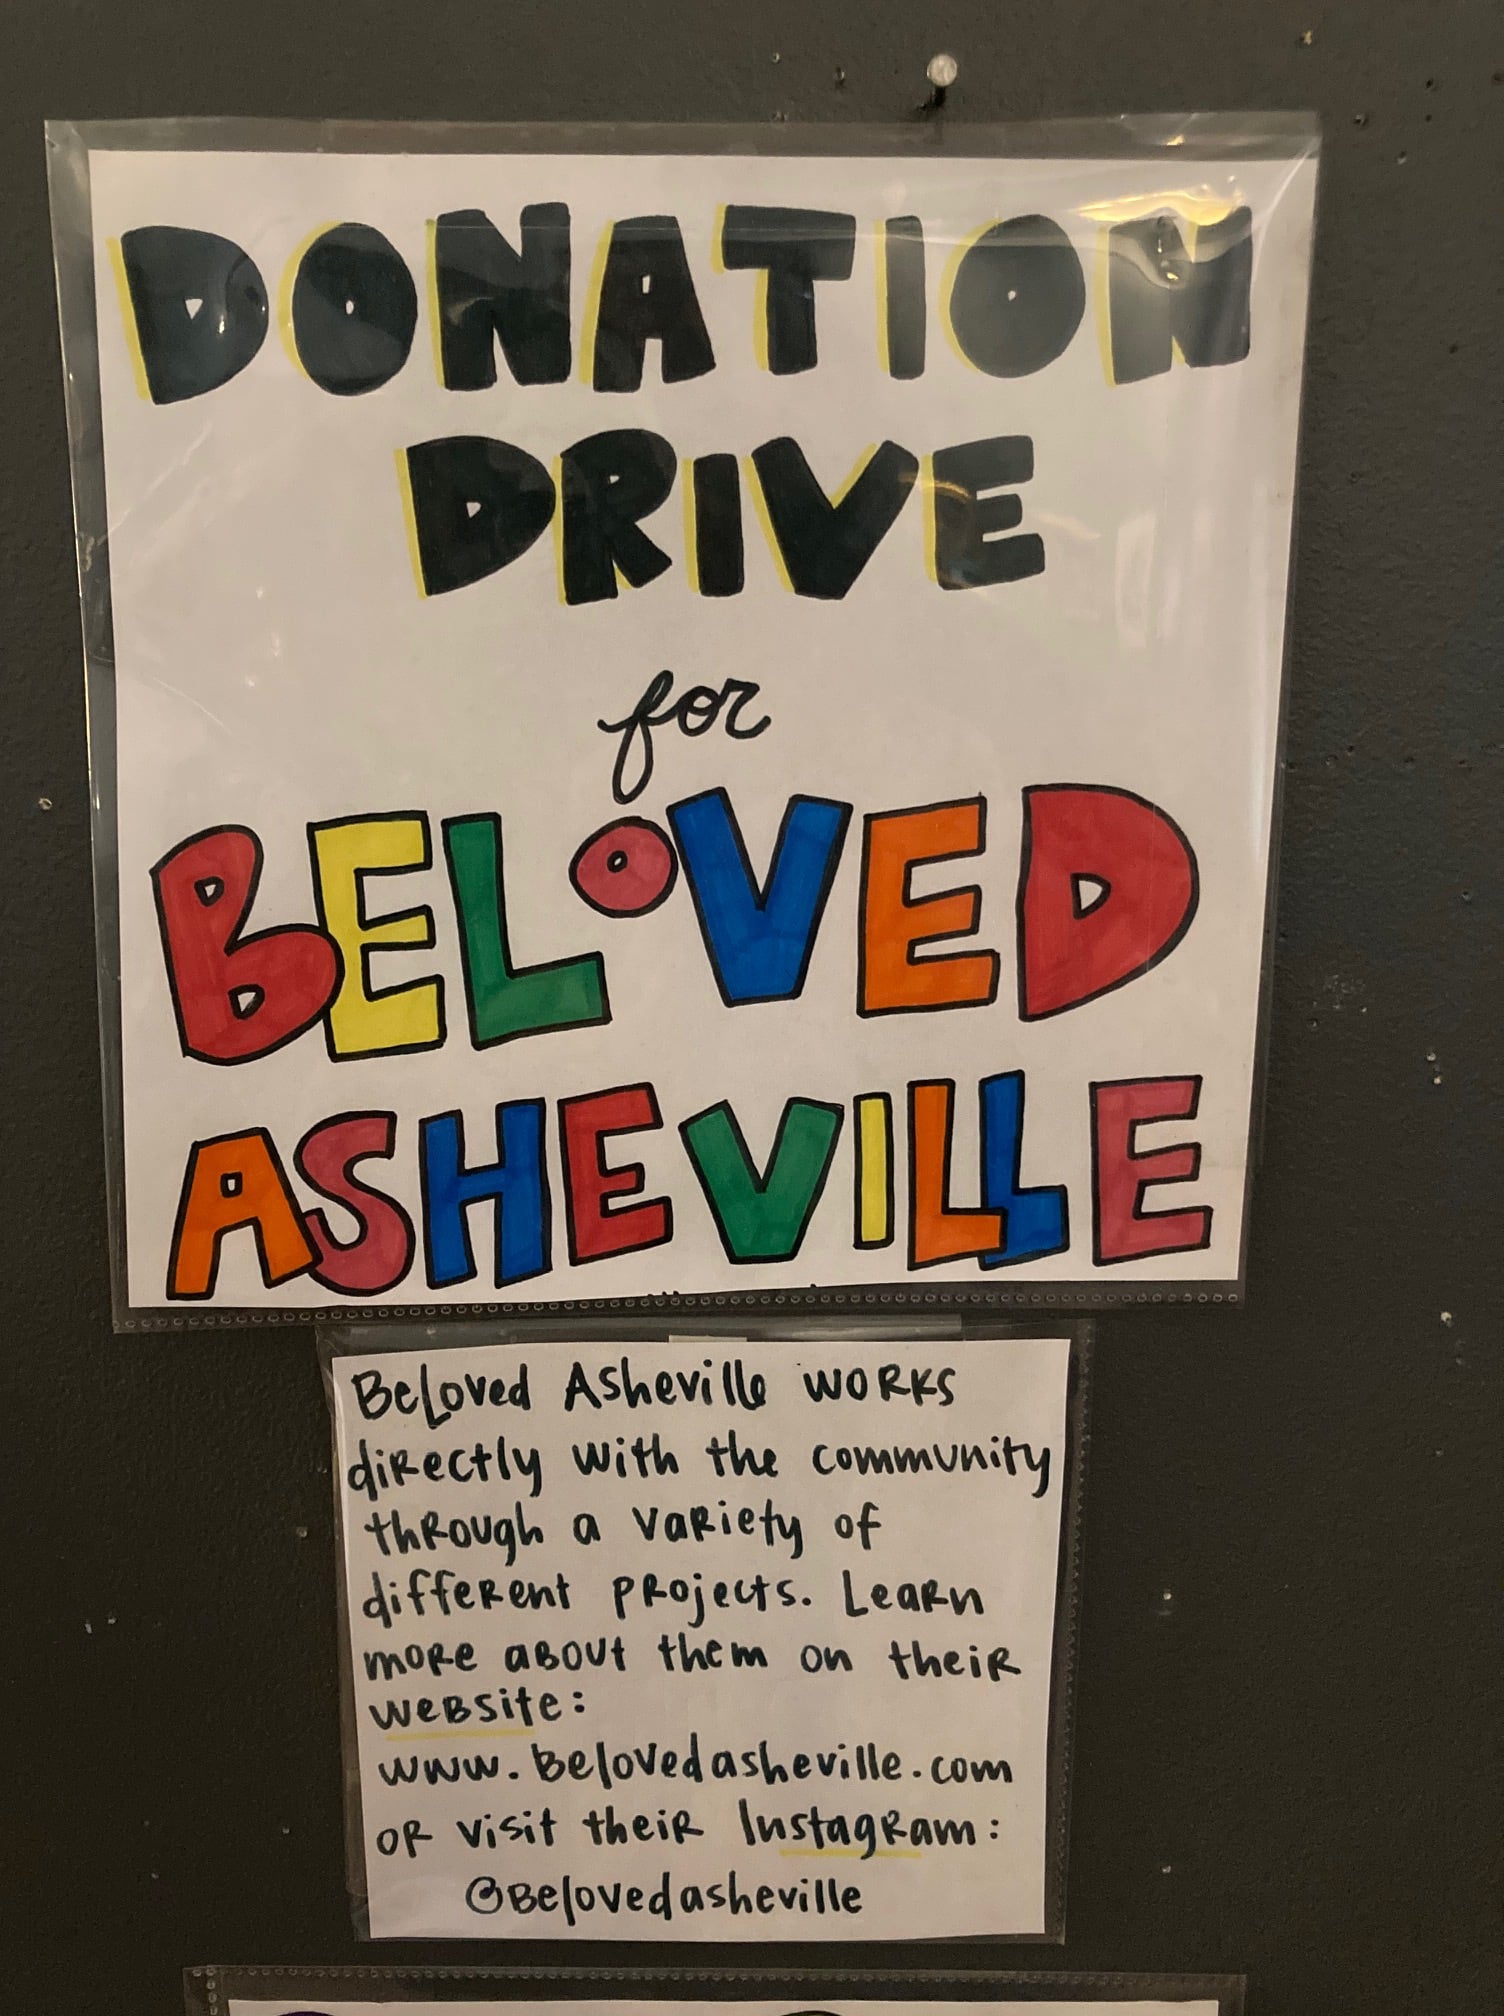 DONATION
DRIVE
for
BELOVED
ASHEVILLE
Beloved Asheville works
directly with the community
through a variety of
different projects. Learn
more about them on their
website:
www.belovedasheville.com
or visit their Instagram:
@Belovedasheville